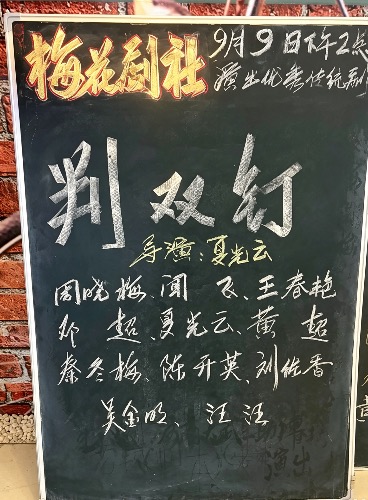 梅花剧社
9月9日下午2点
演出优秀传统剧
判双钉
导演：夏光云
周晓梅、闻飞、王春艳
邹超、夏光云、黄超
秦冬梅、陈开英、刘佐香
吴金明、汪汪
演出